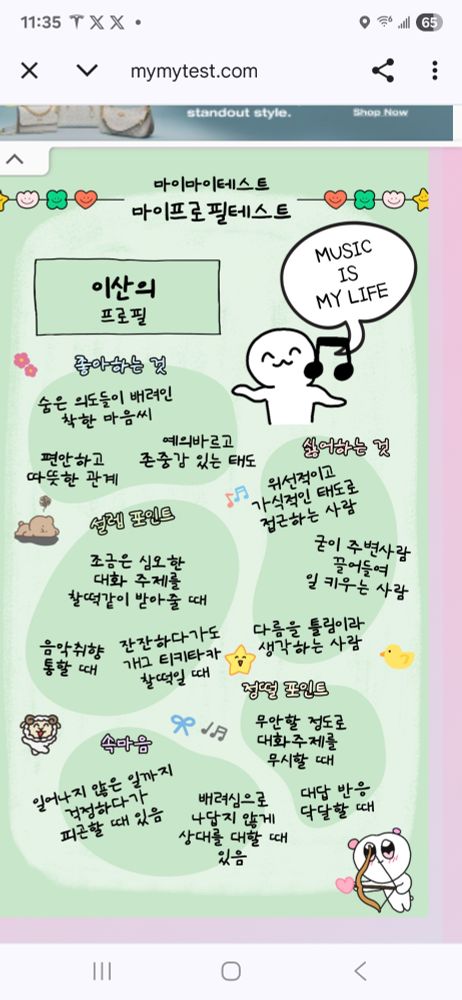 11:35
65
mymytest.com
standout style.
Shop Now
마이마이테스트
마이프로필테스트
MUSIC
IS
MY LIFE
이산의
프로필
좋아하는 것
숨은 의도들이 배려인
착한 마음씨
예의바르고
존중감 있는 태도
편안하고
따뜻한 관계
싫어하는 것
위선적이고
가식적인 태도로
접근하는 사람
굳이 주변사람
끌어들여
일 키우는 사람
다름을 틀림이라
생각하는 사람
설렘 포인트
조금은 심오한
대화 주제를
찰떡같이 받아줄 때
음악취향
통할 때
잔잔하다가도
개그 티키타카
찰떡일 때
정떨 포인트
무안할 정도로
대화주제를
무시할 때
대답 반응
닥달할 때
속마음
일어나지 않은 일까지
걱정하다가
피곤할 때 있음
배려심으로
나답지 않게
상대를 대할 때
있음